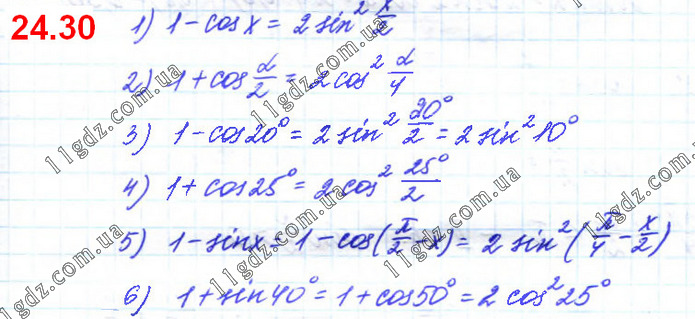 24.30
1) 1 - cos x = 2 sin² x/2
2) 1 + cos α/2 = 2 cos² α/4
3) 1 - cos 20° = 2 sin² 20°/2 = 2 sin² 10°
4) 1 + cos 25° = 2 cos² 25°/2
5) 1 - sin x = 1 - cos(π/2 - x) = 2 sin² (π/4 - x/2)
6) 1 + sin 40° = 1 + cos 50° = 2 cos² 25°
11gdz.com.ua
11gdz.com.ua
11gdz.com.ua
11gdz.com.ua
11gdz.com.ua